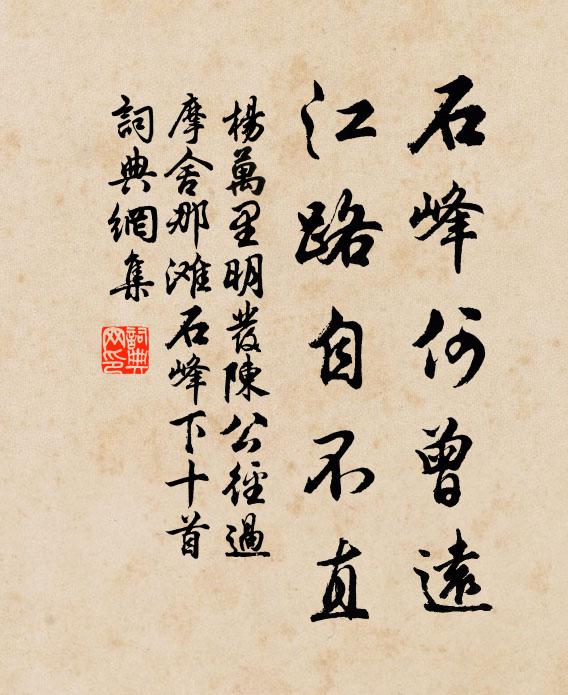 石峰何曾遠
江路自不直
楊萬里明發陳公徑過
摩舍那滩石峰下十首
詞典網集
詞典
网印